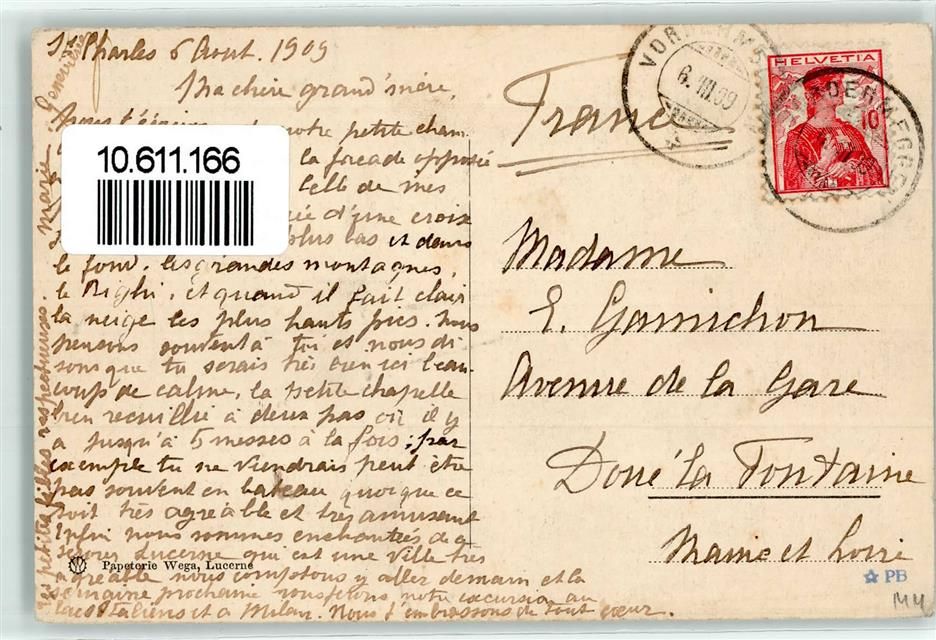 St Charles 6 Aout. 1909
Ma chère grand'mère,
Nous t'écrivons de notre petite cham
la façade opposée
celle de mes
d'une croix
plus bas et dans
le fond. les grandes montagnes,
le Righi, et quand il fait clair
la neige les plus hauts pics. Nous
pensons souvent à toi et nous di
sons que tu serais très bien ici beau
coup de calme, la petite chapelle
bien recueillie à deux pas où il y
a jusqu'à 5 messes à la fois; par
exemple tu ne viendrais peut être
pas souvent en bateau quoique ce
soit très agréable et très amusant
Enfin nous sommes enchantées de
Lucerne qui est une ville très
agréable nous comptons y aller demain et la
semaine prochaine nous ferons notre excursion au
lacs Italiens et à Milan. Nous t'embrassons de tout cœur.
petites filles respectueuses. Marie. Geneviève
10.611.166
Papeterie Wega, Lucerne
France
HELVETIA
10
6. VIII. 09
Madame
E. Gamichon
Avenue de la Gare
Doué la Fontaine
Maine et Loire
PB